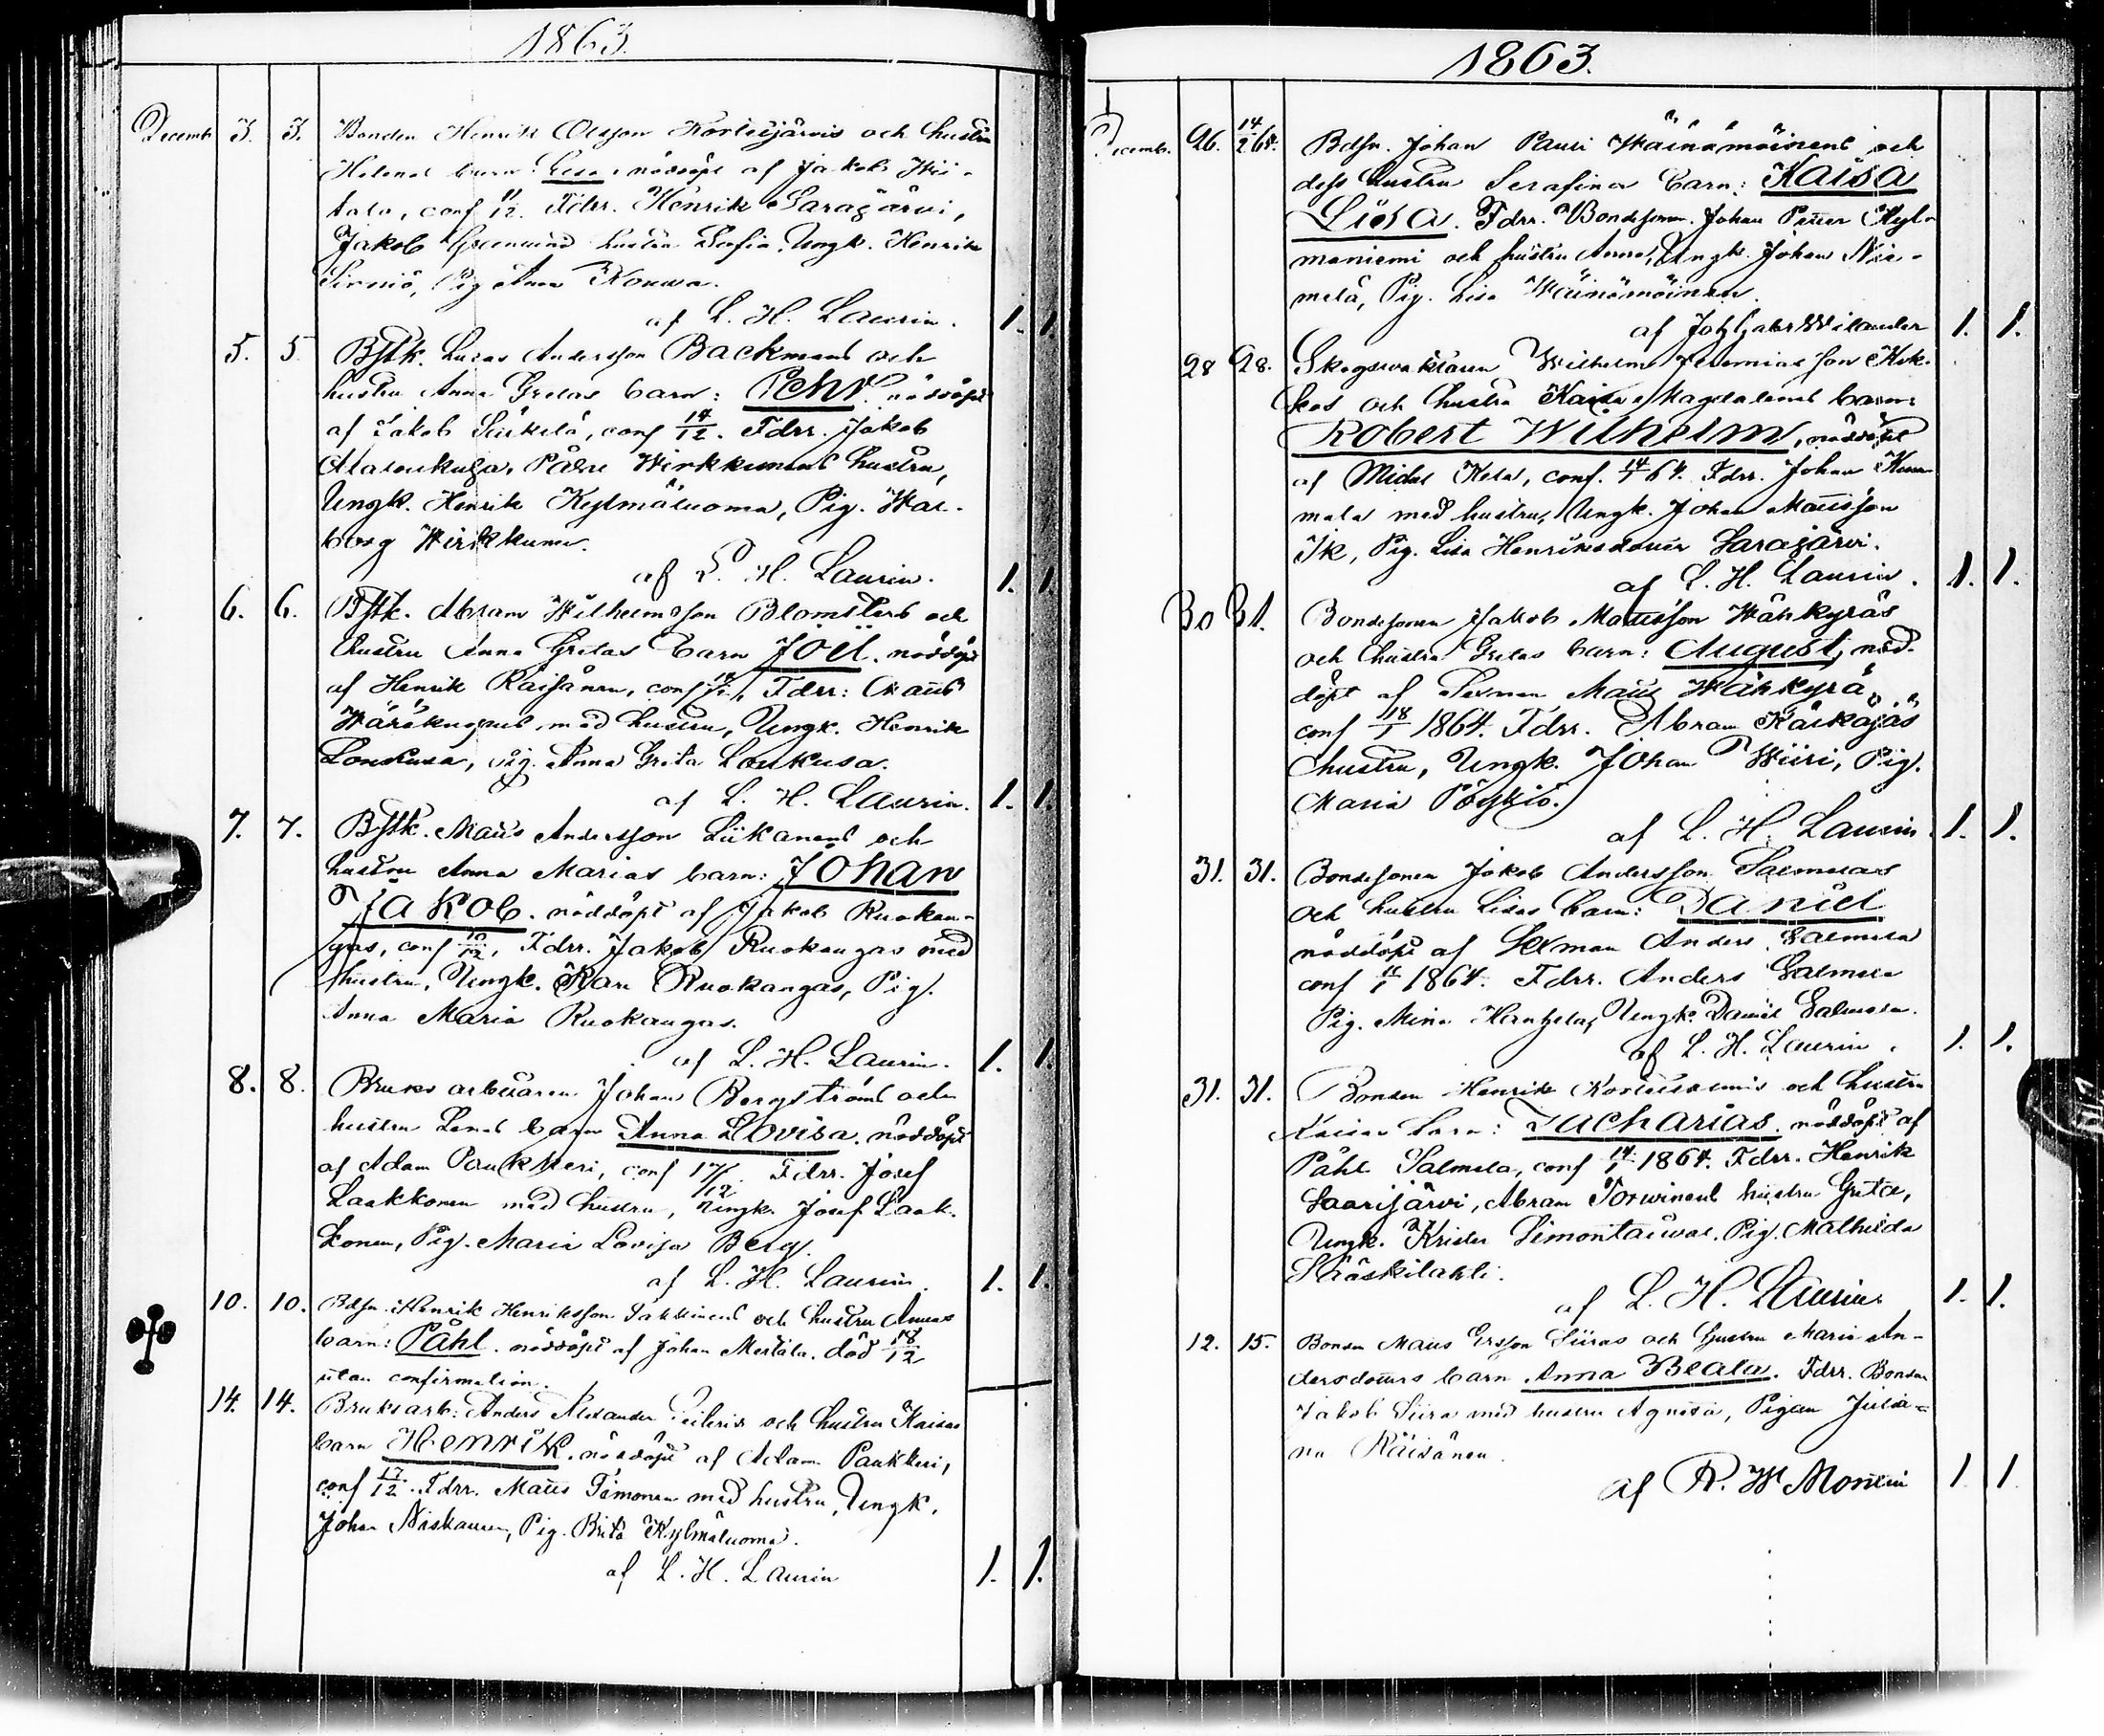 1863.
Decemb 3. 3. Bonden Henrik Olsson Kortesjärvis och hustru
Helenas barn: Lisa, nöddöpt af Jakob
conf 11/12. Fdrr. Henrik Sarajärvi,
Jakob hustru Sofia, Ungk. Henrik
Sirniö, Pig Anna Kouwa.
af L. H. Laurin. 1. 1.
5. 5 Bstk. Lucas Andersson Backmans och
hustru Anna Gretas barn: Pehr nöddöpt
af Jakob Särkelä, conf 14/12. Fdrr. Jakob
Alatoukuja, Påhl Wirkkunens hustru,
Ungk. Henrik Kylmäluoma, Pig. Wal-
borg Wirkkunen.
af L. H. Laurin. 1. 1.
6. 6. Bstk. Abram Wilhelmsson Blomsters och
hustru Anna Gretas barn Joel. nöddöpt
af Henrik Räisänen, conf Fdrr: Matts
med hustru, Ungk. Henrik
Loukusa, Pig. Anna Greta Loukusa.
af L. H. Laurin. 1. 1.
7. 7. Bstk. Matts Andersson Liikanens och
hustru Anna Marias barn: Johan
Jakob. nöddöpt af Jakob Ruokan-
gas, conf Fdrr. Jakob Ruokangas med
hustru, Ungk. Karl Ruokangas, Pig.
Anna Maria Ruokangas.
af L. H. Laurin. 1. 1.
8. 8. Bruks arbetaren Johan Bergströms och
hustru Lenas barn Anna Lovisa. nöddöpt
af Adam Paukkeri, conf 17/12. Fdrr. Josef
Laakkonen med hustru, Ungk. Josef Laak-
konen, Pig. Maria Lovisa Berg.
af L. H. Laurin. 1. 1.
10. 10. Bdsn. Henrik Henriksson och hustru Annas
barn: Påhl. nöddöpt af Johan Mertala. död 18/12
utan confirmation.
14. 14. Bruksarb: Anders Alexander och hustru Kaisas
barn Henrik. nöddöpt af Adam Paukkeri,
conf 17/12. Fdrr. Matts Timonen med hustru, Ungk.
Johan Niskanen, Pig. Brita Kylmäluoma.
af L. H. Laurin 1. 1.
1863.
Decemb. 26. 14/2 64. Bdsn. Johan Pauli Wäinämöinens och
dess hustru Serafinas barn: Kaisa
Liisa. Fdrr. Bondesonen Johan Petter Kyl-
maniemi och hustru Anna, Ungk. Johan Nie-
melä, Pig. Lisa Wäinämöinen.
af Joh Gabr Wilander 1. 1.
28 28. Skogsvaktaren Wilhelm Jeremiasson
och hustru Kaisa Magdalenas barn:
Robert Wilhelm, nöddöpt
af Midas Kela, conf. 14/1 64. Fdrr. Johan Kum-
mala med hustru, Ungk. Johan Mattsson
Pig. Lisa Henriksdotter Sarajärvi.
af L. H. Laurin. 1. 1.
30 31. Bondesonen Jakob Mattsson Wähkyräs
och hustru Gretas barn: August, nöd-
döpt af Sexman Matts Wähkyrä,
conf 18/1 1864. Fdrr. Abram
hustru, Ungk. Johan Wiiri, Pig.
Maria Pöyskiö.
af L. H. Laurin 1. 1.
31. 31. Bondesonen Jakob Andersson Salmelas
och hustru Lisas barn: Daniel
nöddöpt af Sexman Anders Salmela
conf 1864. Fdrr. Anders Salmela
Pig. Mina Ungk. Daniel Salmela.
af L. H. Laurin. 1. 1.
31. 31. Bonden Henrik Kortesalmis och hustru
Kaisas barn: Zacharias. nöddöpt af
Påhl Salmela, conf 14/1 1864. Fdrr. Henrik
Saarijärvi, Abram Torwinens hustru Greta,
Ungk. Krister Simontaival, Pig. Mathilda
Jääskilahti.
af L. H. Laurin 1. 1.
12. 15. Bonden Matts Ersson Siiras och hustru Maria An-
dersdotters barn Anna Beata. Fdrr. Bonden
Jakob Siira med hustru Agneta, Pigan Julia-
na Räisänen.
af R. W Montin 1. 1.